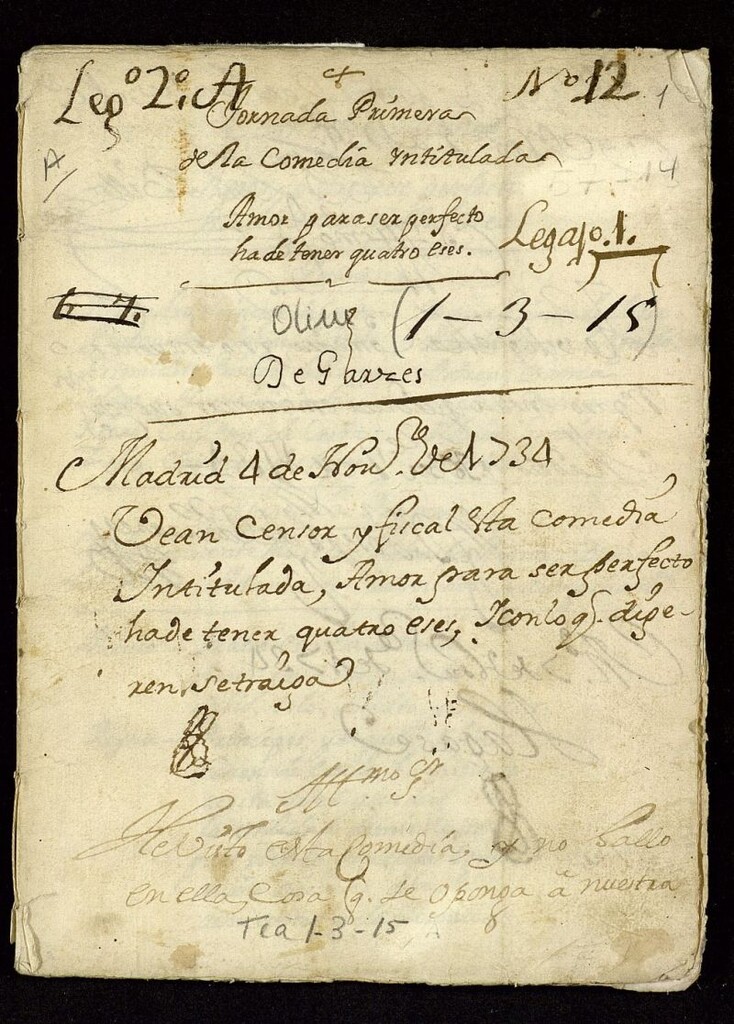 Leg.º 2.º A
Nº 12
1
Jornada Primera
de la Comedia Yntitulada
A
14
Amor para ser perfecto
ha de tener quatro eses.
Legajo. 1.
(1-3-15)
De Garzes
Madrid 4 de Nou.e de 1734
Vean Censor y fiscal esta Comedia
Yntitulada, Amor para ser perfecto
ha de tener quatro eses, Y con lo q. dige-
ren, se traiga
He Visto esta Comedia, y no hallo
en ella, Cosa q. se oponga a nuestra
Tea 1-3-15